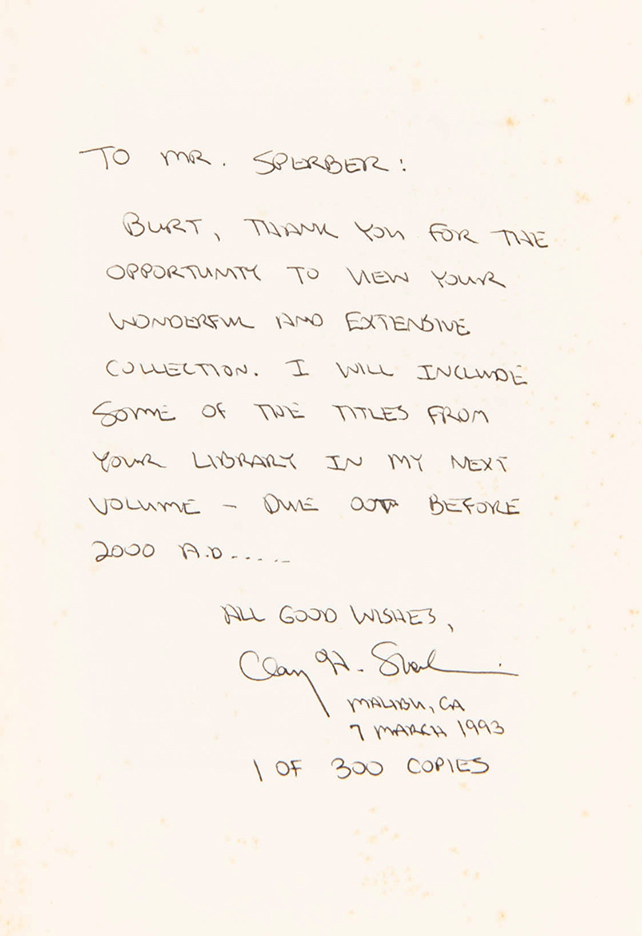 TO MR. SPERBER:
BURT, THANK YOU FOR THE
OPPORTUNITY TO VIEW YOUR
WONDERFUL AND EXTENSIVE
COLLECTION. I WILL INCLUDE
SOME OF THE TITLES FROM
YOUR LIBRARY IN MY NEXT
VOLUME - DUE OUT BEFORE
2000 A.D.....
ALL GOOD WISHES,
MALIBU, CA
7 MARCH 1993
1 OF 300 COPIES